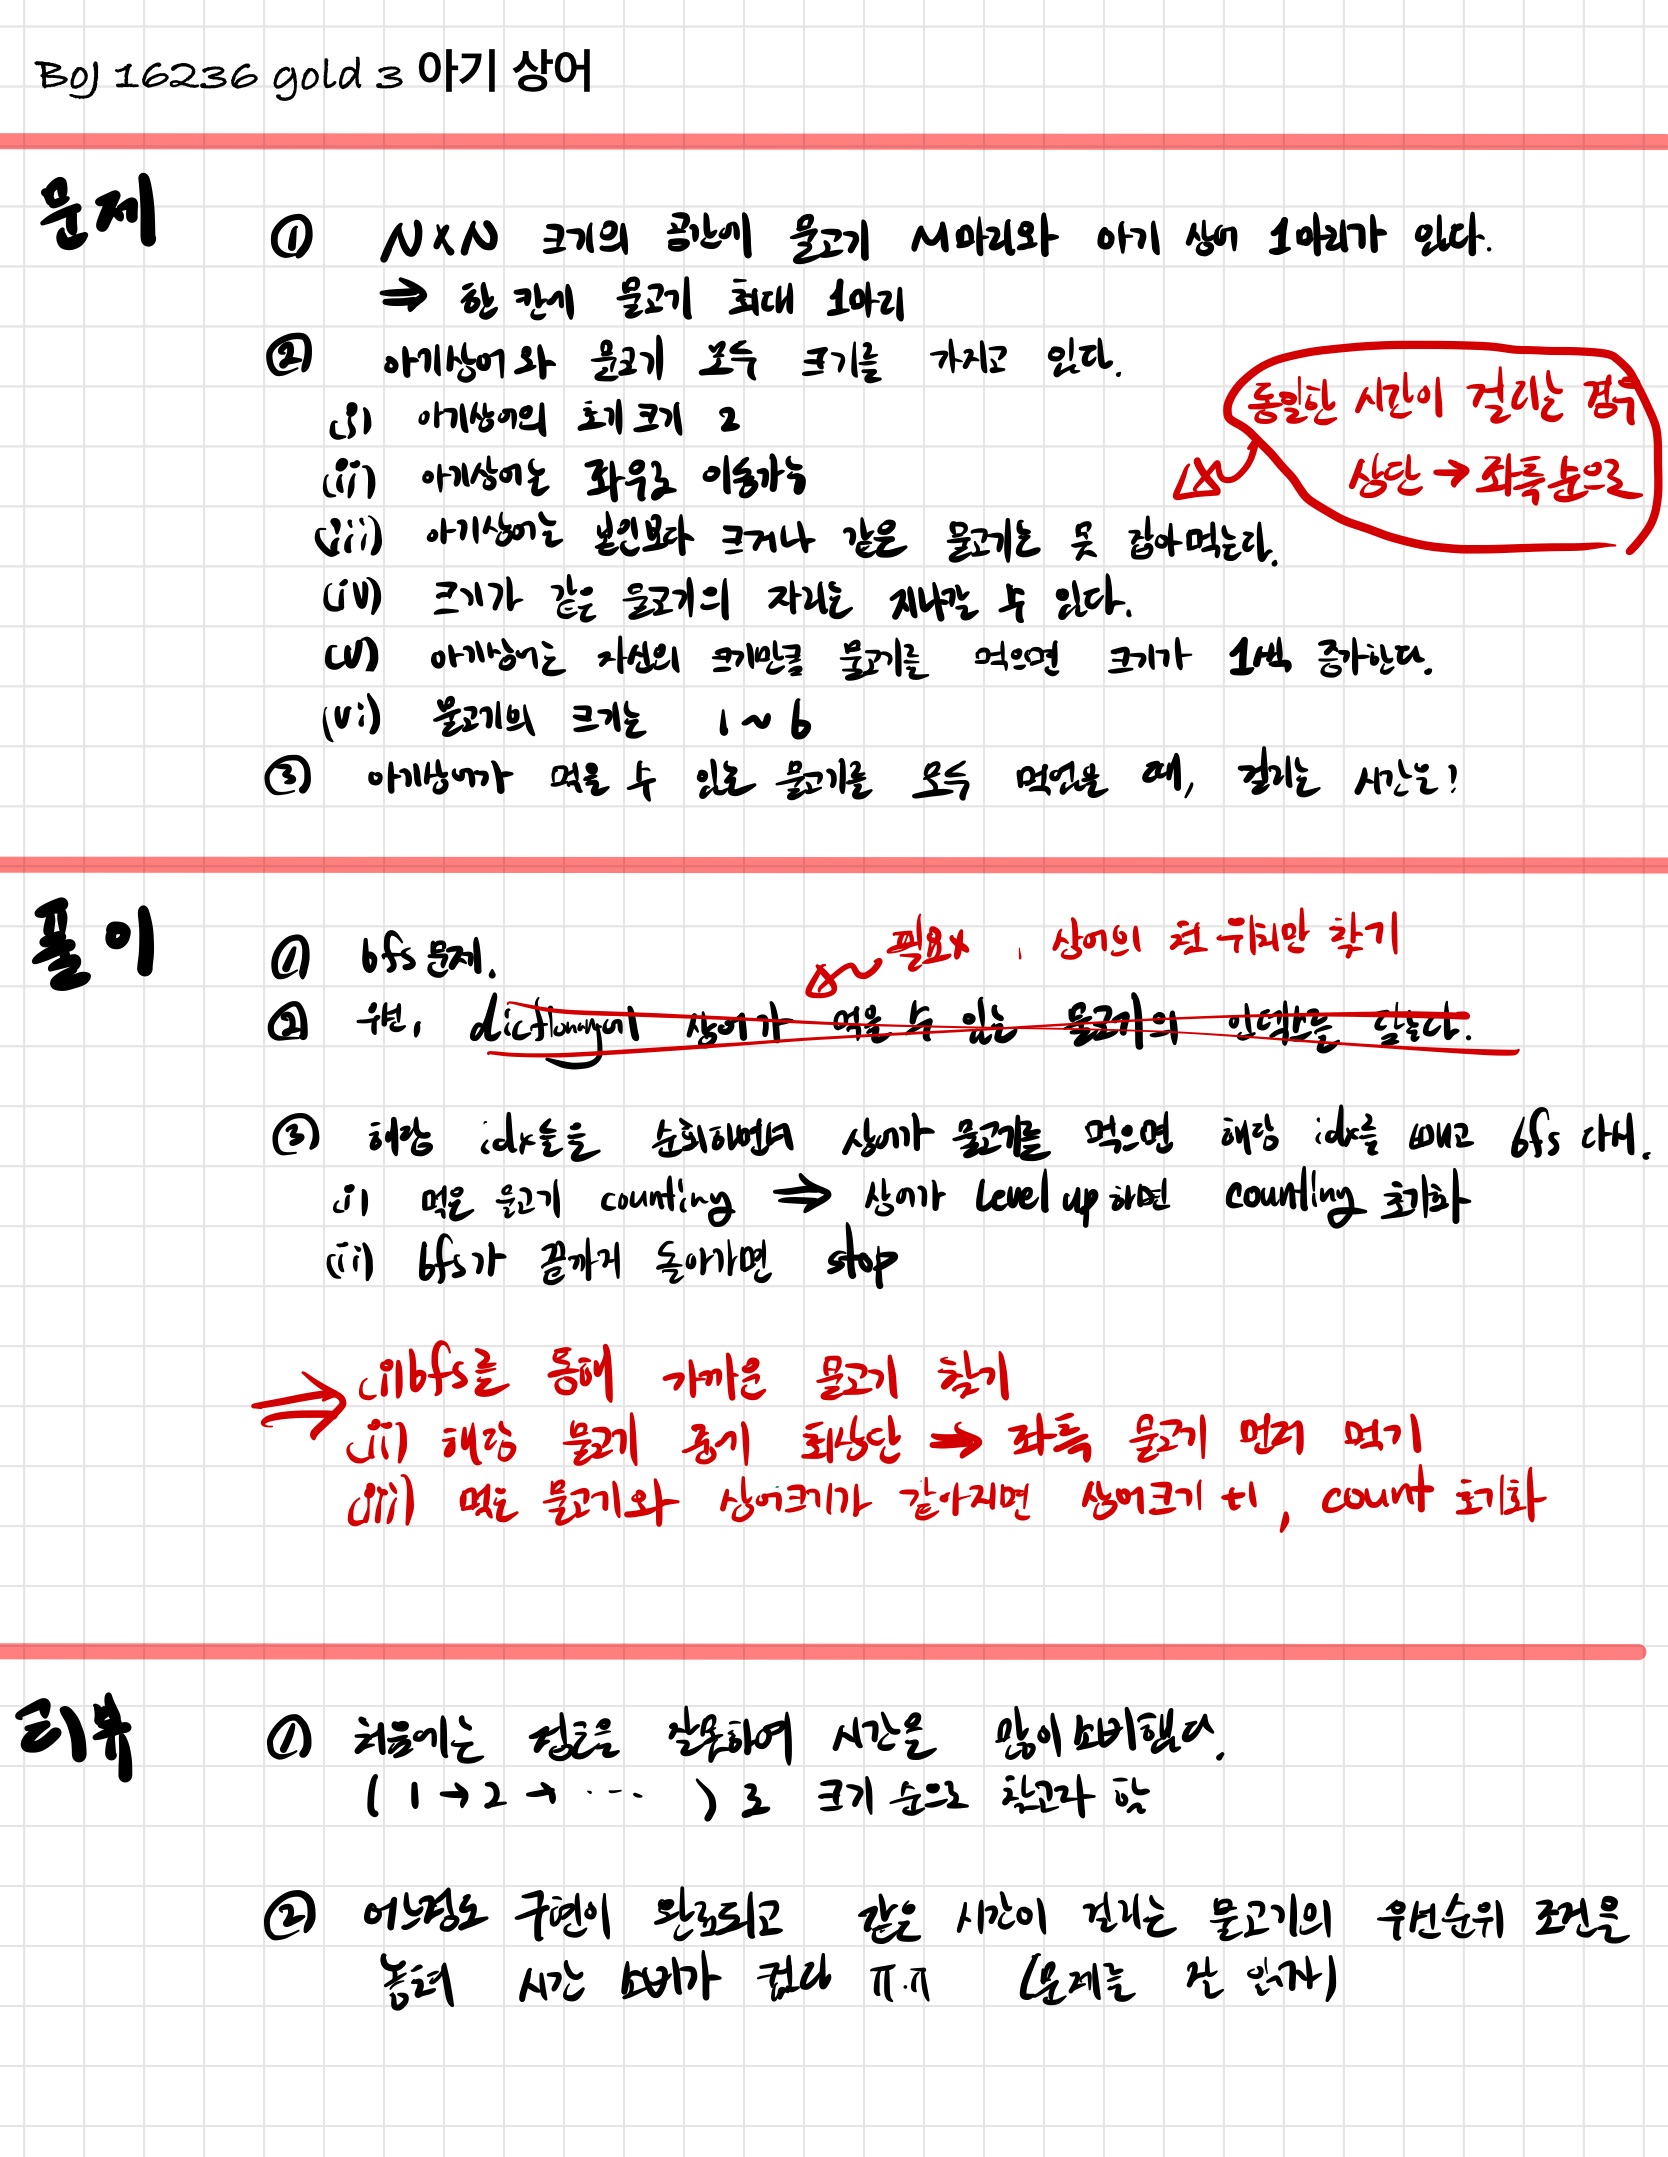 BOJ 16236 gold 3 아기 상어
문제
① N×N 크기의 공간에 물고기 M마리와 아기 상어 1마리가 있다.
⇒ 한 칸에 물고기 최대 1마리
② 아기상어와 물고기 모두 크기를 가지고 있다.
동일한 시간이 걸리는 경우
상단 → 좌측순으로
(i) 아기상어의 초기크기 2
(ii) 아기상어는 좌우로 이동가능
(iii) 아기상어는 본인보다 크거나 같은 물고기는 못 잡아먹는다.
(iv) 크기가 같은 물고기의 자리는 지나갈 수 있다.
(v) 아기상어는 자신의 크기만큼 물고기를 먹으면 크기가 1씩 증가한다.
(vi) 물고기의 크기는 1~6
③ 아기상어가 먹을 수 있는 물고기를 모두 먹었을 때, 걸리는 시간은?
풀이
① bfs 문제.
필요x , 상어의 첫 위치만 찾기
② 우선, dictionary에 상어가 먹을 수 있는 물고기의 인덱스를 담는다.
③ 해당 idx들을 순회하면서 상어가 물고기를 먹으면 해당 idx를 빼고 bfs 다시.
(i) 먹은 물고기 counting ⇒ 상어가 level up하면 counting 초기화
(ii) bfs가 끝까지 돌아가면 stop
⇒ (i) bfs를 통해 가까운 물고기 찾기
(ii) 해당 물고기 중에 최상단 → 좌측 물고기 먼저 먹기
(iii) 먹는 물고기와 상어크기가 같아지면 상어크기 +1, count 초기화
리뷰
① 처음에는 접근을 잘못하여 시간을 많이 소비했다.
( 1 → 2 → ··· )로 크기 순으로 찾고자 함
② 어느정도 구현이 완료되고 같은 시간이 걸리는 물고기의 우선순위 조건을
놓쳐 시간 소비가 컸다 ㅠ.ㅠ (문제를 잘 읽자)